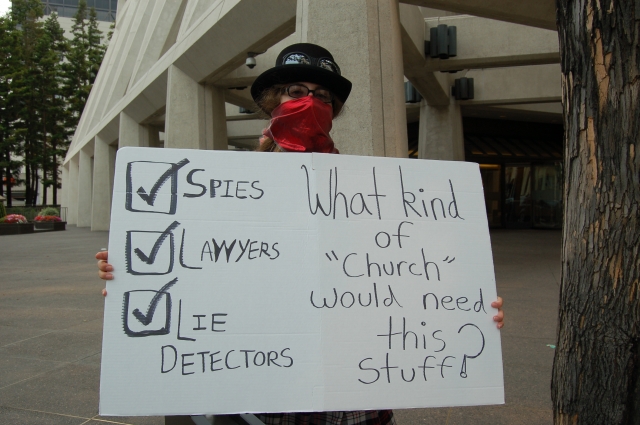 SPIES
LAWYERS
LIE
DETECTORS
What kind
of
"Church"
would need
this
stuff?